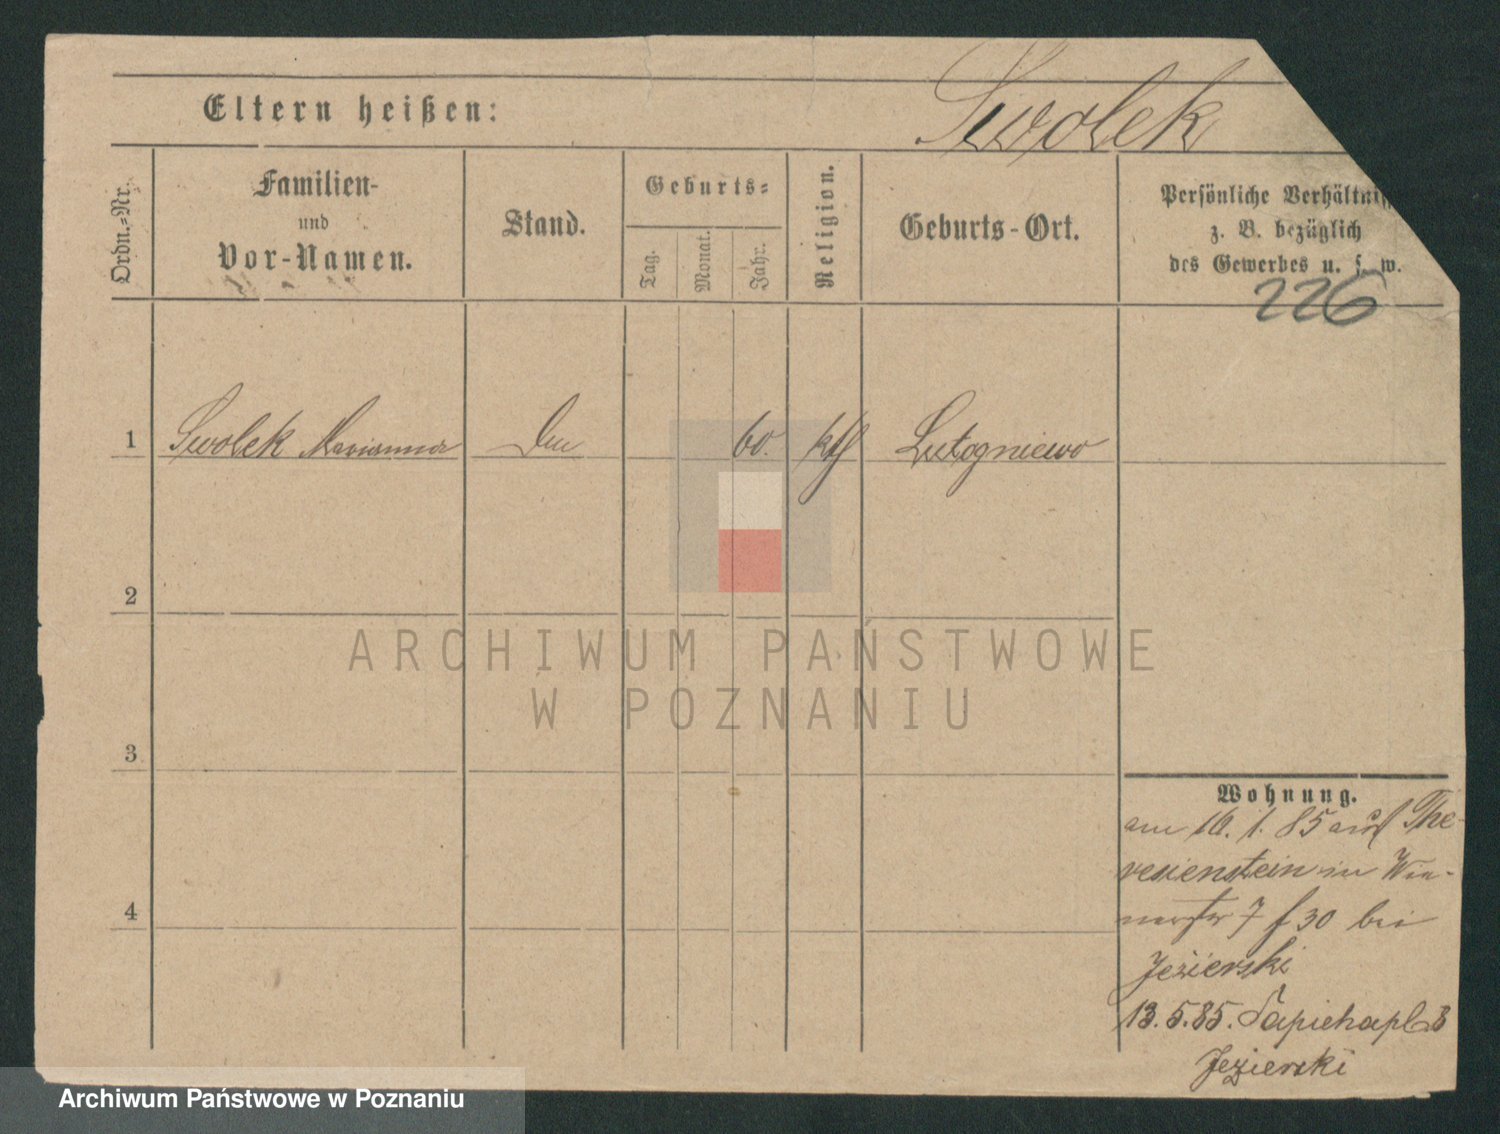 Swolek
Eltern heißen:
Ordn.-Nr.
Familien-
und
Vor-Namen.
Stand.
Geburts-
Tag.
Monat.
Jahr.
Religion.
Geburts-Ort.
Persönliche Verhältniss
z. B. bezüglich
des Gewerbes u. s. w.
226
1 Swolek Marianna 60. kth Lutogniewo
2
3
4
ARCHIWUM PAŃSTWOWE
W POZNANIU
Wohnung.
am 16. 1. 85 auf The-
resienstein in Wie-
7 f 30 bei
Jezierski
13. 5. 85. Sapiehapl. 3
Jezierski
Archiwum Państwowe w Poznaniu